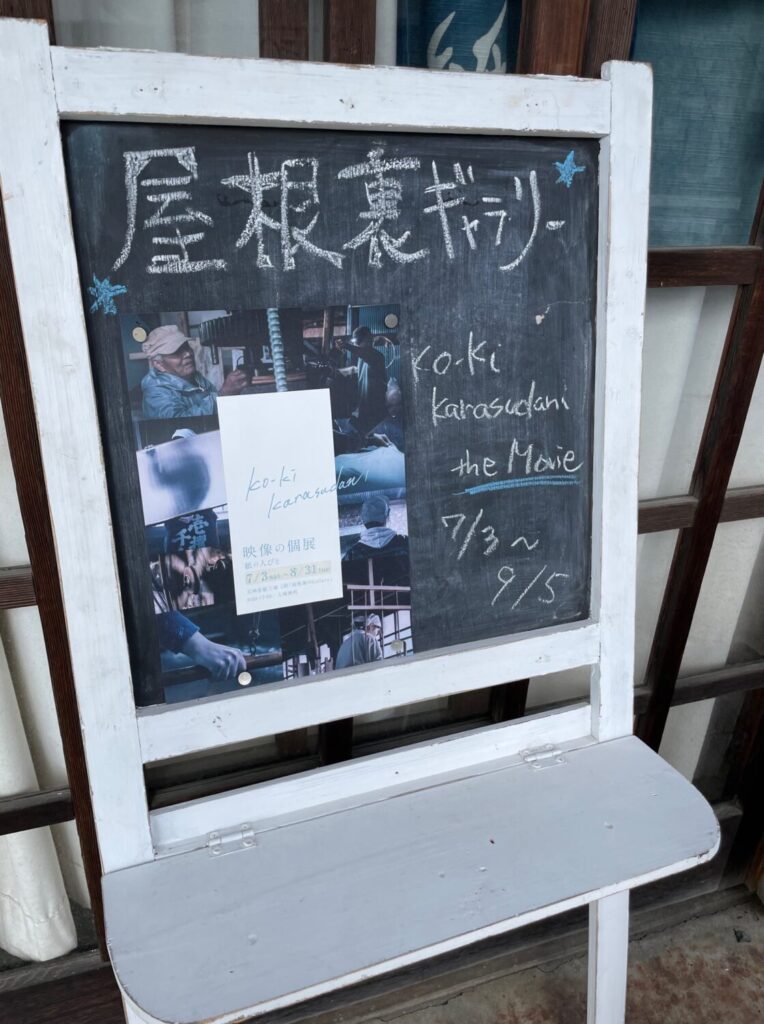 屋根裏ギャラリー
ko-ki
karasudani
the Movie
7/3~
9/5
ko-ki
karasudani
映像の個展
7/3 sat.~8/31 tue.